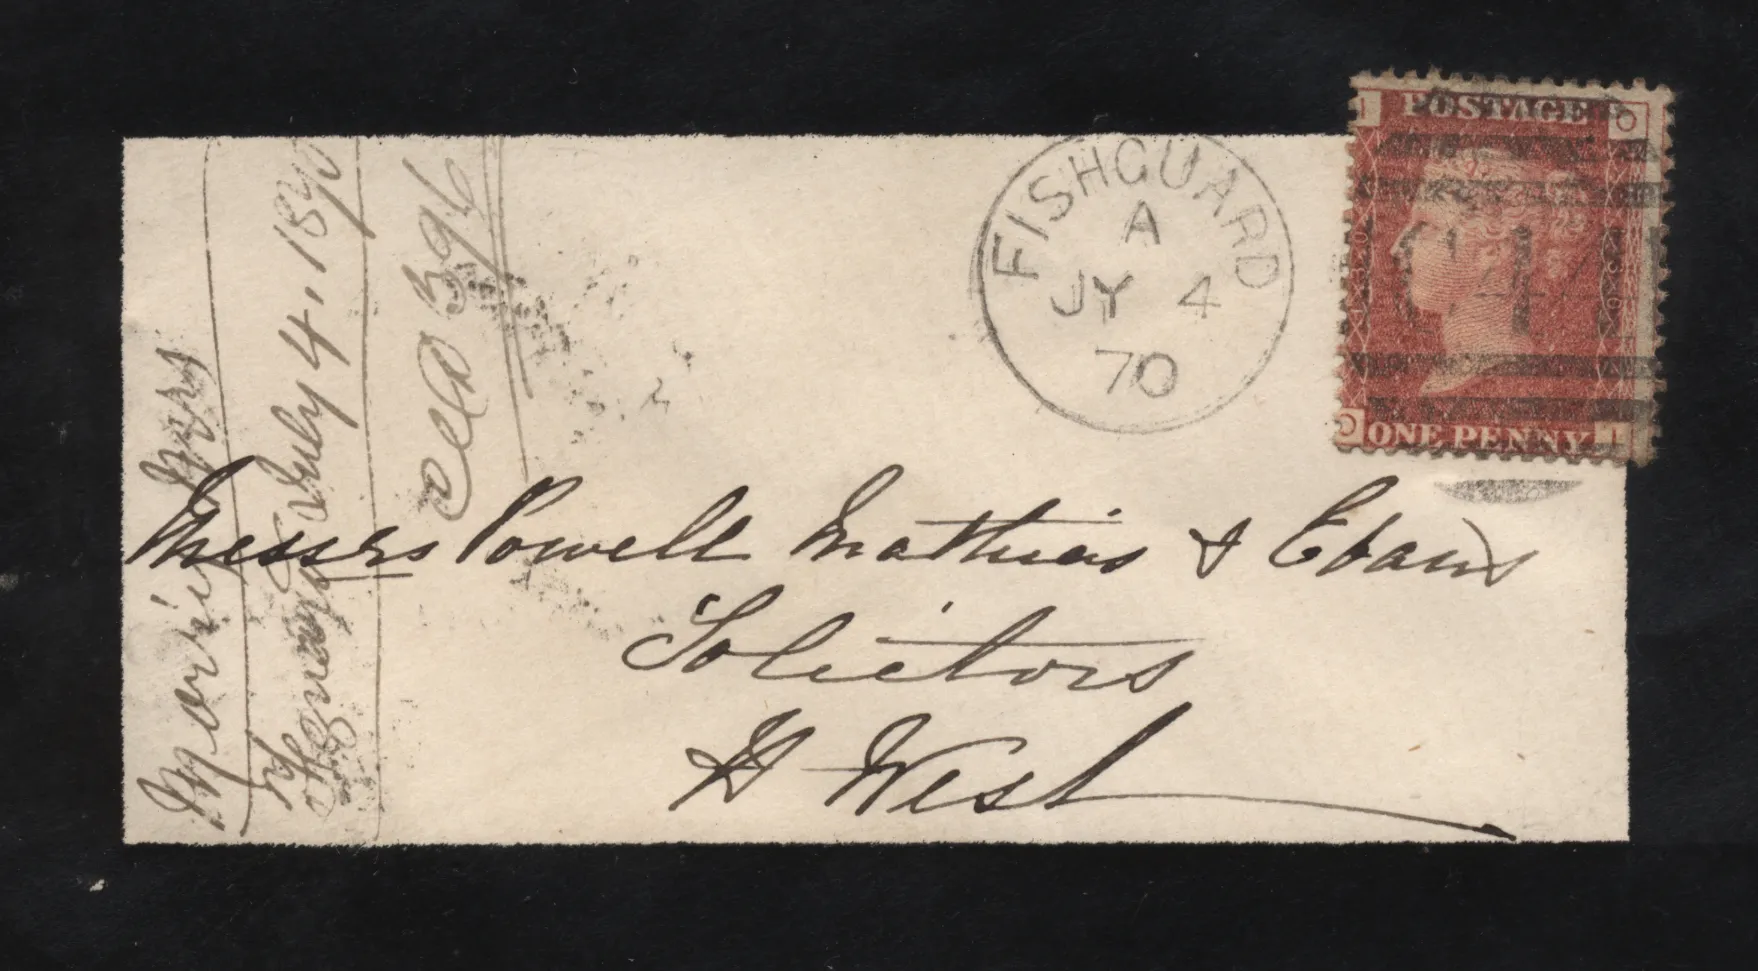 FISHGUARD
A
JY 4
70
POSTAGE
O
ONE PENNY
Messrs Powell Mathias & Evans
Solicitors
H West
July 4. 1870